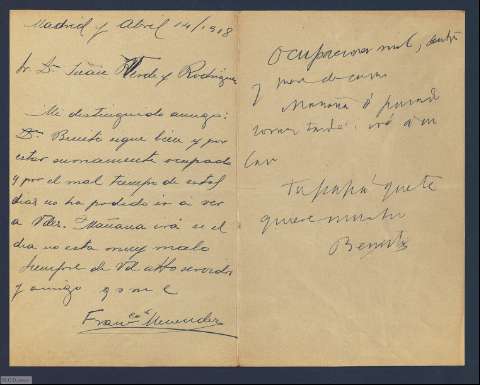 Madrid y Abril 14/1918
Sr. Dn. Verde y Rodriguez
Mi distinguido amigo:
Dn. Benito sigue bien y por
estar sumamente ocupado
y por el mal tiempo de estos
dias no ha podido ir a ver
a Vdes. Mañana irá si el
dia no esta muy malo
Siempre de Vd affo servidor
y amigo q s m e
Franco. Menendez
Ocupaciones mil, dentro
y fuera de casa
Mañana ó pasado
irá a su
Casa
Tu papá que te
quiere mucho
Benito